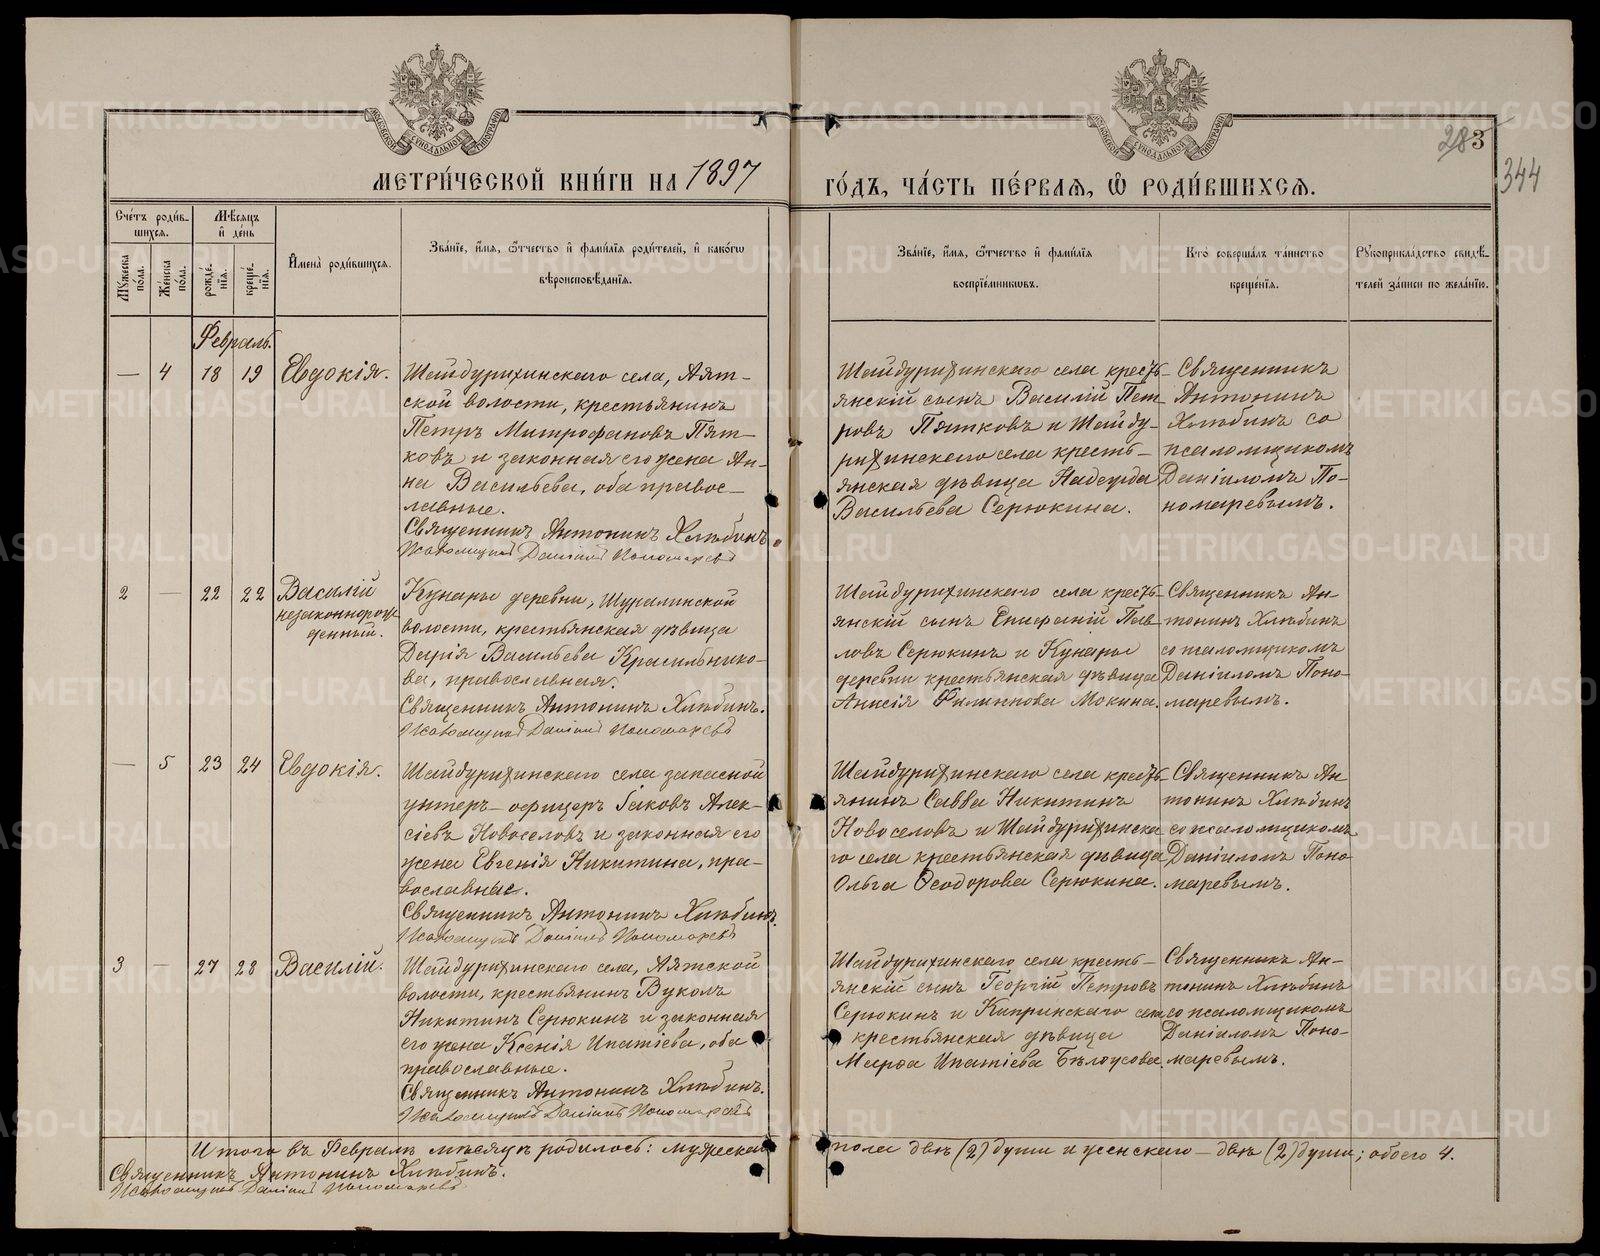 МЕТРИ́ЧЕСКОЙ КНИ́ГИ НА 1897
ГО́ДЪ, ЧА́СТЬ ПЕ́РВАѦ, Ѽ РОДИ́ВШИХСѦ.
283
344
Сче́тъ роди́в-
шихсѧ.
Мѣ́сѧцъ
и҆ де́нь
Мꙋ́жеска
по́ла.
Же́нска
по́ла.
рожде́-
нїѧ.
креще́-
нїѧ.
И҆мена̀ роди́вшихсѧ.
Зва́нїе, и҆́мѧ, ѻ҆́тчество и҆ фами́лїѧ роди́телей, и҆ како́гѡ
вѣроисповѣ́данїѧ.
Зва́нїе, и҆́мѧ, ѻ҆́тчество и҆ фами́лїѧ
воспрїе́мникѡвъ.
Кто̀ соверша́лъ та́инство
креще́нїѧ.
Рꙋкоприкла́дство свидѣ́-
телей за́писи по жела́нїю.
Февраль.
— 4 18 19 Евдокія.
Шайдурихинскаго села, Аят-
ской волости, крестьянинъ
Петръ Митрофановъ Пят-
ковъ и законная его жена Ан-
на Васильева, оба правос-
лавные.
Священникъ Антонинъ Хлѣбинъ
Псаломщикъ Даніилъ Пономаревъ
Шайдурихинскаго села кресть-
янскій сынъ Василій Пет-
ровъ Пятковъ и Шайду-
рихинскаго села кресть-
янская дѣвица Надежда
Васильева Серюкина.
Священникъ
Антонинъ
Хлѣбинъ со
псаломщикомъ
Даніиломъ По-
номаревымъ.
2 — 22 22 Василій
незаконнорож-
денный.
Кунары деревни, Шуралинской
волости, крестьянская дѣвица
Дарія Васильева Красильнико-
ва, православная.
Священникъ Антонинъ Хлѣбинъ.
Псаломщикъ Даніилъ Пономаревъ
Шайдурихинскаго села кресть-
янскій сынъ Епифаній Пав-
ловъ Серюкинъ и Кунары
деревни крестьянская дѣвица
Анисія Филиппова Мокина.
Священникъ Ан-
тонинъ Хлѣбинъ
со псаломщикомъ
Даніиломъ Поно-
маревымъ.
— 5 23 24 Евдокія.
Шайдурихинскаго села запасной
унтеръ-офицеръ Іаковъ Алек-
сіевъ Новоселовъ и законная его
жена Евгенія Никитина, пра-
вославные.
Священникъ Антонинъ Хлѣбинъ.
Псаломщикъ Даніилъ Пономаревъ
Шайдурихинскаго села кресть-
янинъ Савва Никитинъ
Новоселовъ и Шайдурихинска
го села крестьянская дѣвица
Ольга Ѳеодорова Серюкина.
Священникъ Ан
тонинъ Хлѣбинъ
со псаломщикомъ
Даніиломъ Поно
маревымъ.
3 — 27 28 Василій.
Шайдурихинскаго села, Аятской
волости, крестьянинъ Вуколъ
Никитинъ Серюкинъ и законная
его жена Ксенія Ипатіева, оба
православные.
Священникъ Антонинъ Хлѣбинъ.
Псаломщикъ Даніилъ Пономаревъ
Шайдурихинскаго села кресть-
янскій сынъ Георгій Петровъ
Серюкинъ и Киприинскаго села
крестьянская дѣвица
Марѳа Ипатіева Бѣлоусова.
Священникъ Ан-
тонинъ Хлѣбинъ
со псаломщикомъ
Даніиломъ Поно-
маревымъ.
Итого въ Февралѣ мѣсяцѣ родилось: мужеска
пола двѣ (2) души и женскаго — двѣ (2) души; обоего 4.
Священникъ Антонинъ Хлѣбинъ.
Псаломщикъ Даніилъ Пономаревъ
METRIKI.GASO-URAL.RU